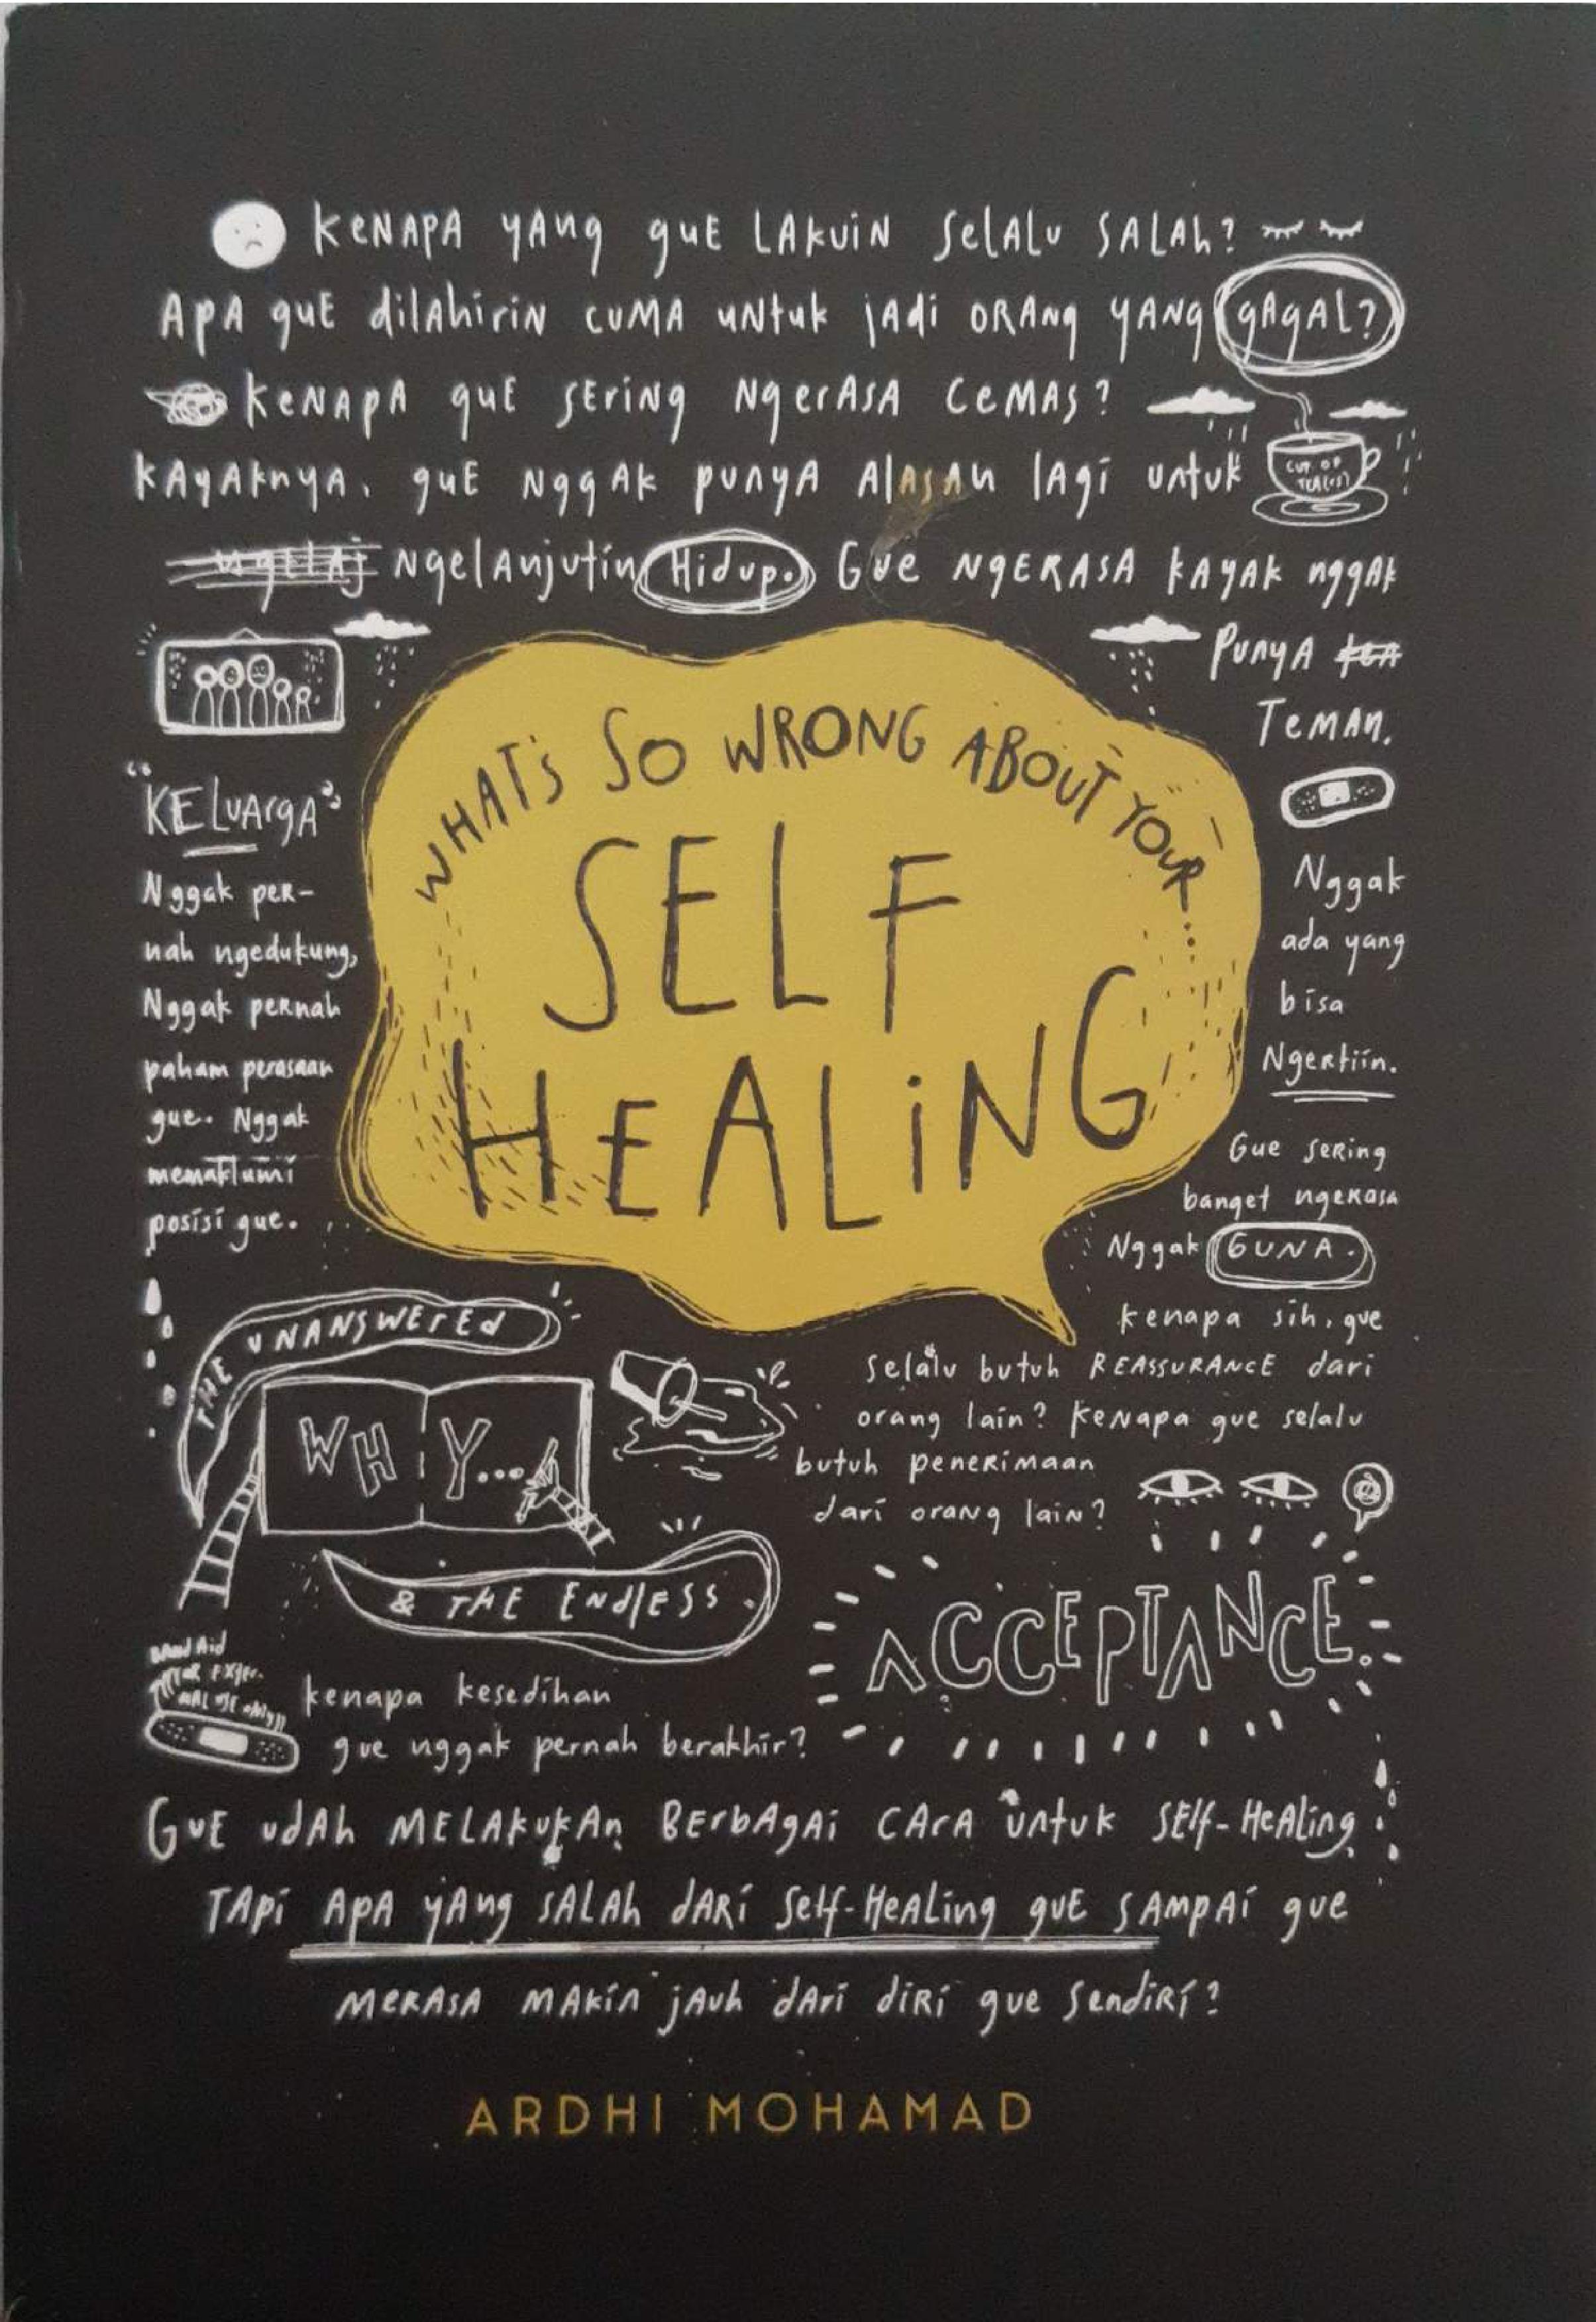 KENAPA YANG GUE LAKUIN SELALU SALAH?
APA GUE DILAHIRIN CUMA UNTUK JADI ORANG YANG GAGAL?
KENAPA GUE SERING NGERASA CEMAS?
KAYAKNYA, GUE NGGAK PUNYA ALASAN LAGI UNTUK
CUP OF
TEA(RS)
NGELANJUTIN HIDUP. GUE NGERASA KAYAK NGGAK
PUNYA
TEMAN.
"KELUARGA"
Nggak per-
nah ngedukung,
Nggak pernah
paham perasaan
gue. Nggak
memaklumi
posisi gue.
WHAT'S SO WRONG ABOUT YOUR...
SELF
HEALING
Nggak
ada yang
bisa
Ngertiin.
Gue sering
banget ngerasa
Nggak GUNA.
kenapa sih, gue
selalu butuh REASSURANCE dari
orang lain? Kenapa gue selalu
butuh penerimaan
dari orang lain?
THE UNANSWERED
WHY...
& THE ENDLESS.
ACCEPTANCE.
Band Aid
kenapa kesedihan
gue nggak pernah berakhir?
GUE UDAH MELAKUKAN BERBAGAI CARA UNTUK SELF-HEALING,
TAPI APA YANG SALAH DARI SELF-HEALING GUE SAMPAI GUE
MERASA MAKIN JAUH DARI DIRI GUE SENDIRI?
ARDHI MOHAMAD